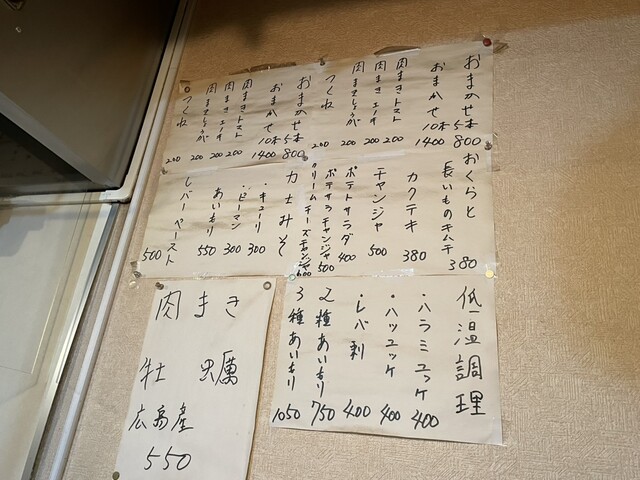 おまかせ5本 800
おまかせ10本 1400
肉まきトマト 200
肉まきエノキ 200
肉まきしょうが 200
つくね 200
おまかせ5本 800
おまかせ10本 1400
肉まきトマト 200
肉まきエノキ 200
肉まきしょうが 200
つくね 200
おくらと
長いものキムチ 380
カクテキ 380
チャンジャ 500
ポテトサラダ 400
ポテサラチャンジャ 500
クリームチーズチャンジャ 600
カ土みそ
・キューリ 300
・ピーマン 300
あいもり 550
レバーペースト 500
低温調理
・ハラミユッケ 400
・ハツユッケ 400
・レバ刺 400
2種あいもり 750
3種あいもり 1050
肉まき
牡蠣
広島産
550